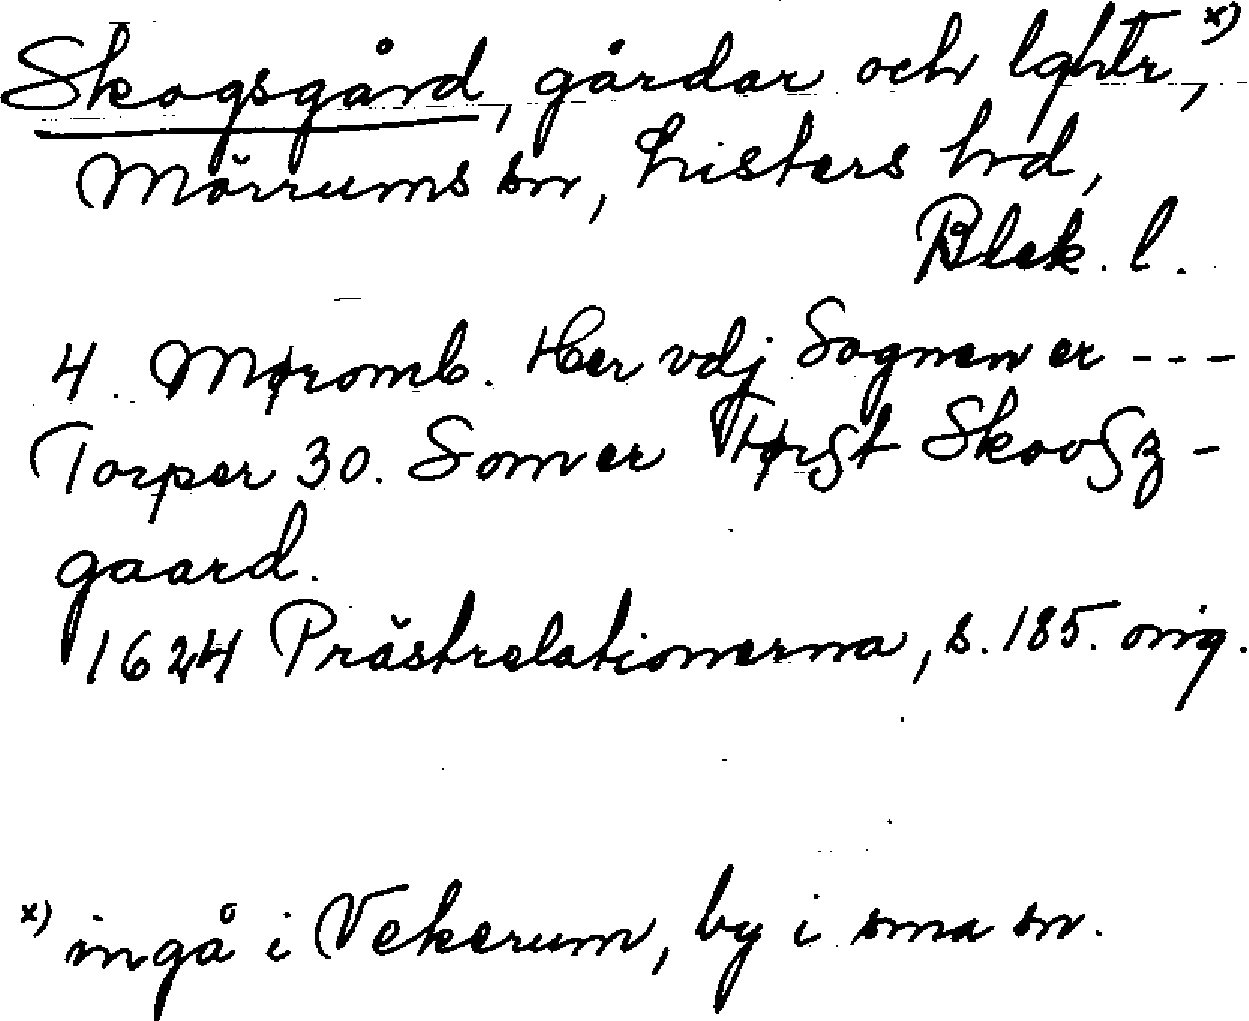 Skogsgård, gårdar och lghtr, x)
Mörrums sn, Listers hd,
Blek. l.
4. Møromb. Her vdj Sognen er ---
Torper 30. Som er Først Skoofz-
gaard.
1624 Prästrelationerna, s. 185. orig.
x) ingå i Vekerum, by i sma sn.